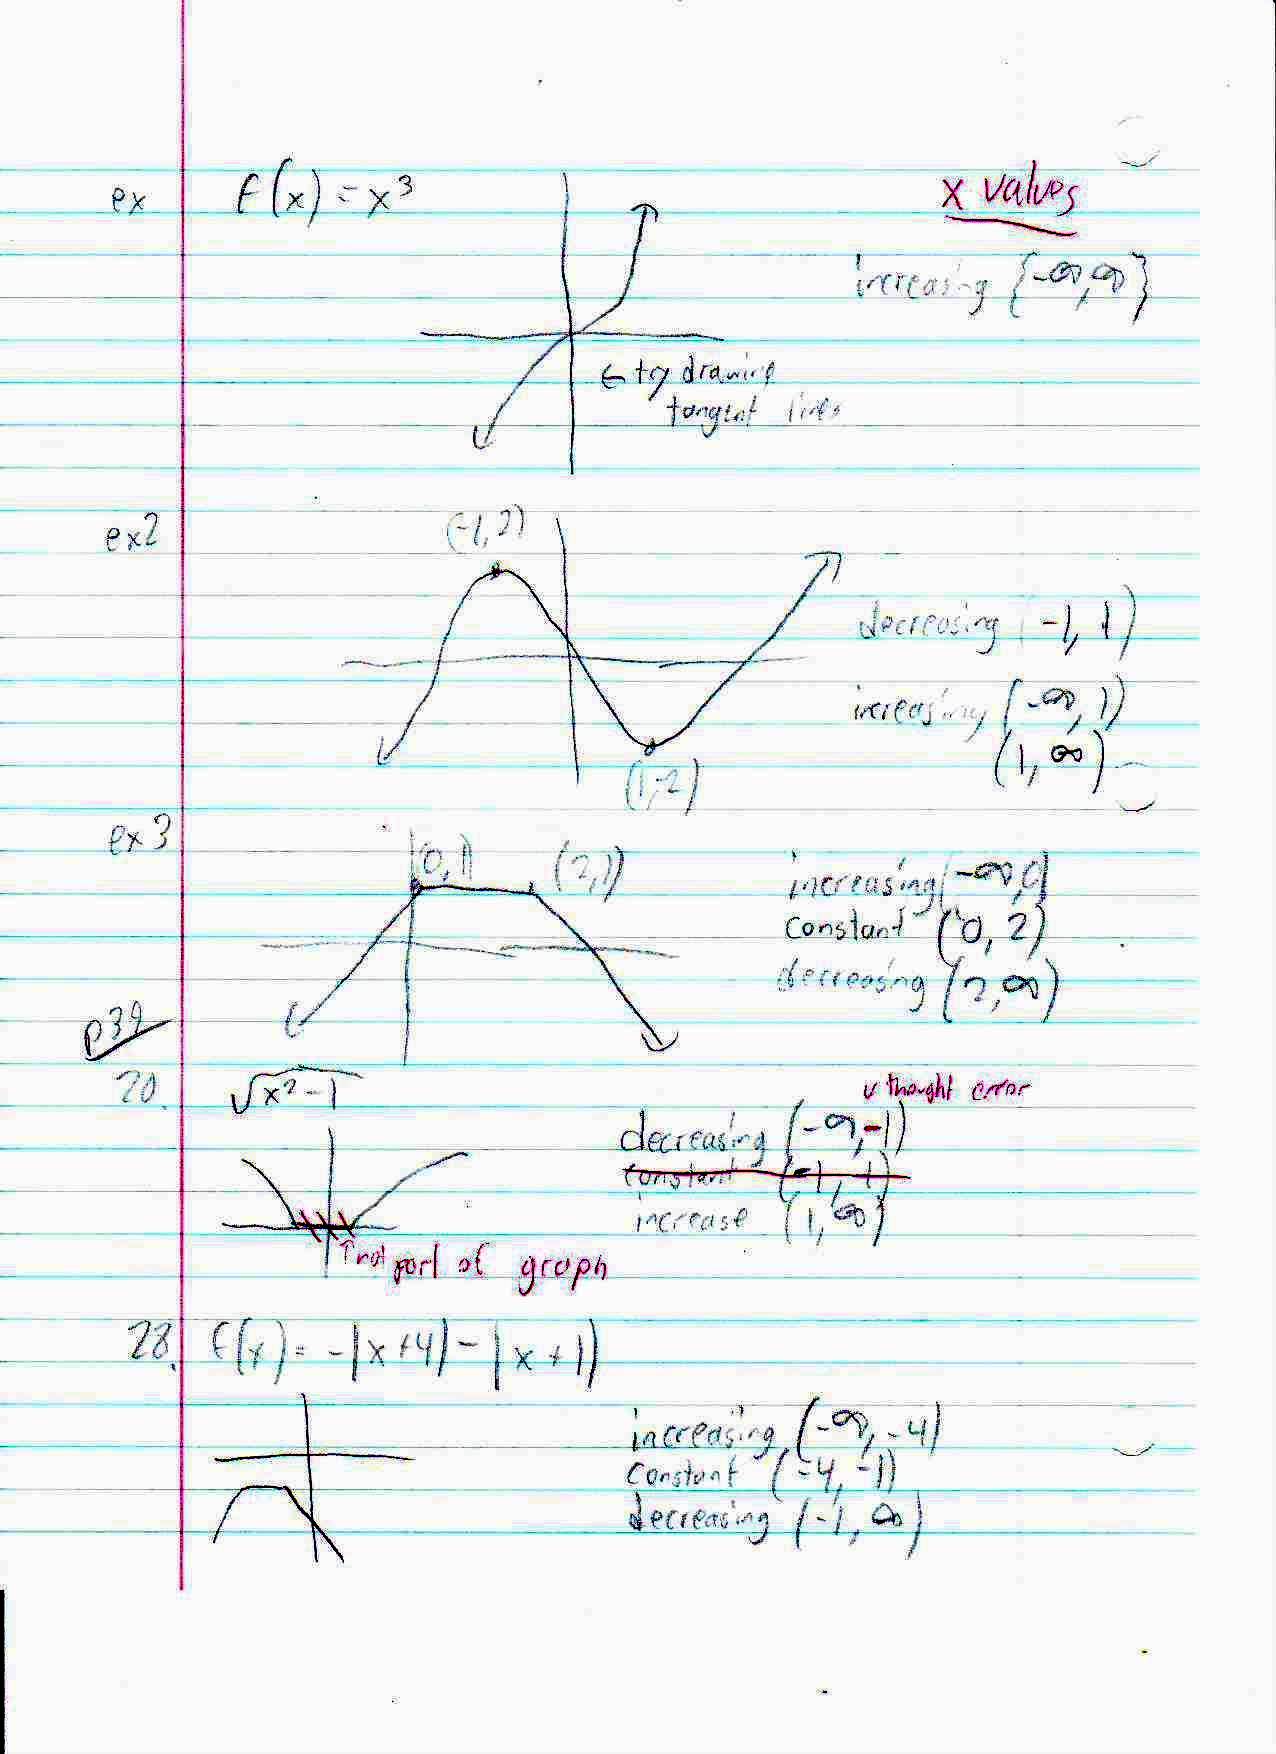 ex f(x) = x³
x values
increasing {-∞,∞}
← try drawing
tangent lines
ex2 (-1, 2)
decreasing (-1, 1)
increasing (-∞, 1)
(1, ∞)
(1,-2)
ex 3 (0,1) (2,1)
increasing (-∞,0)
constant (0, 2)
decreasing (2,∞)
p39
20. √x²-1
↓ thought error
decreasing (-∞,-1)
constant (-1, 1)
increase (1, ∞)
↑ not part of graph
28. f(x) = -|x+4| - |x+1|
increasing (-∞, -4)
constant (-4, -1)
decreasing (-1, ∞)